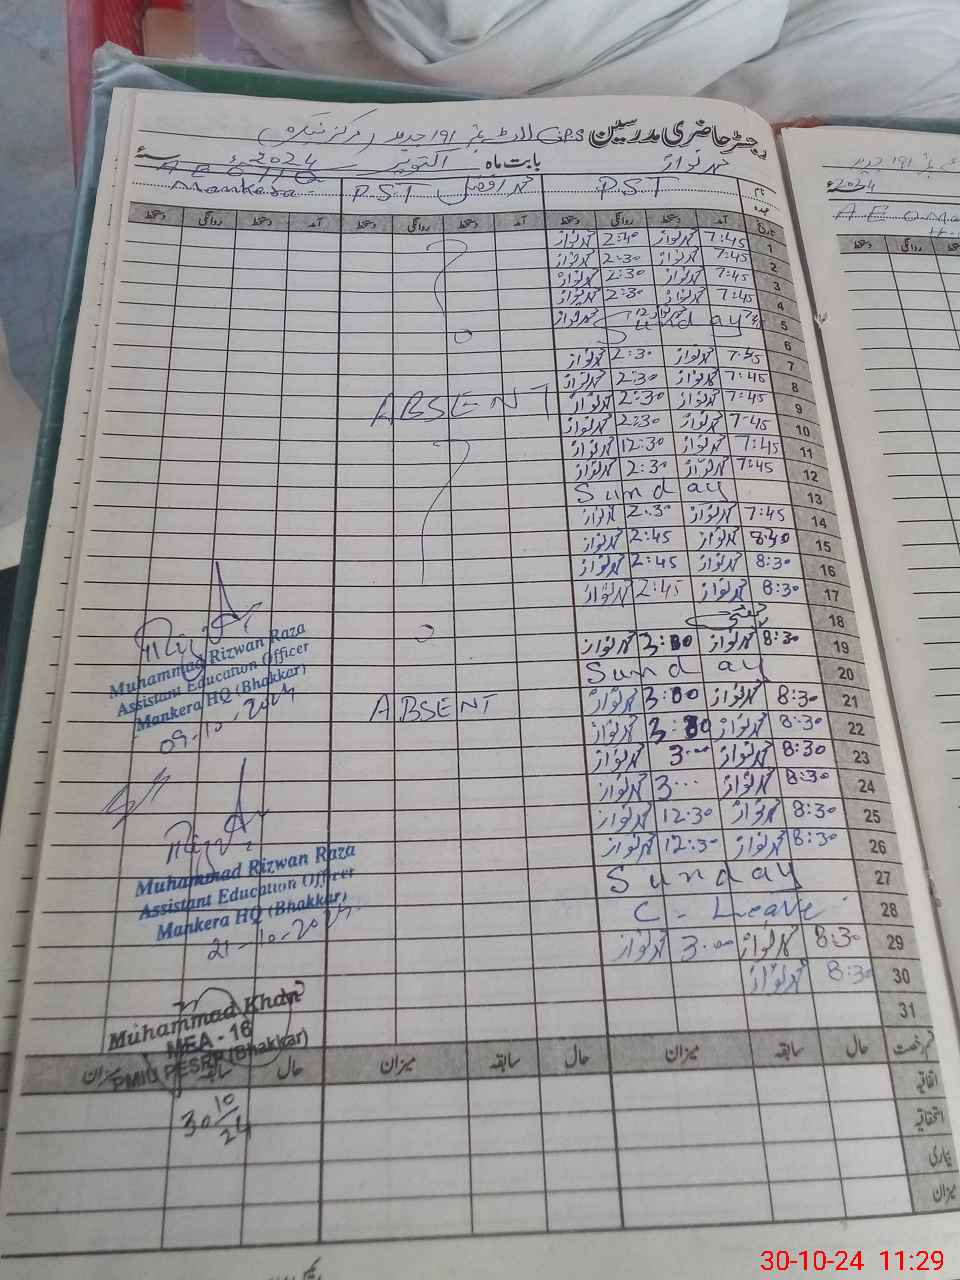 رجسٹر حاضری مدرسین GPS ۱۹۱ جدید (مرکز منکیرہ)
بابت ماہ اکتوبر 2024ء
محمد نواز
نام
P.S.T
محمد افضل P.S.T
AEO HQ Mankera
عہدہ
تاریخ آمد دستخط روانگی دستخط آمد دستخط روانگی دستخط آمد دستخط روانگی دستخط
1 7:45 محمد نواز 2:40 محمد نواز
2 7:45 محمد نواز 2:30 محمد نواز
3 7:45 محمد نواز 2:30 محمد نواز
4 7:45 محمد نواز 2:30 محمد نواز
5 محمد نواز
6 Sunday
7 7:45 محمد نواز 2:30 محمد نواز
8 7:45 محمد نواز 2:30 محمد نواز
9 7:45 محمد نواز 2:30 محمد نواز
ABSENT
10 7:45 محمد نواز 2:30 محمد نواز
11 7:45 محمد نواز 12:30 محمد نواز
12 7:45 محمد نواز 2:30 محمد نواز
13 Sunday
14 7:45 محمد نواز 2:30 محمد نواز
15 8:40 محمد نواز 2:45 محمد نواز
16 8:30 محمد نواز 2:45 محمد نواز
17 8:30 محمد نواز 2:45 محمد نواز
18
19 8:30 محمد نواز محمد نواز
20 Sunday
21 8:30 محمد نواز 3:00 محمد نواز
ABSENT
22 8:30 محمد نواز محمد نواز
23 8:30 محمد نواز 3:00 محمد نواز
24 8:30 محمد نواز 3:00 محمد نواز
25 8:30 محمد نواز 12:30 محمد نواز
26 8:30 محمد نواز 12:30 محمد نواز
27 Sunday
28 C - Leave
29 8:30 محمد نواز 3:00 محمد نواز
30 8:30 محمد نواز
31
Muhammad Rizwan Raza
Assistant Education Officer
Mankera HQ (Bhakkar)
09-10-2024
Muhammad Rizwan Raza
Assistant Education Officer
Mankera HQ (Bhakkar)
21-10-2024
Muhammad Khan
MEA - 16
PMIU PESRP (Bhakkar)
قسم رخصت حال سابقہ میزان حال سابقہ میزان حال سابقہ میزان
اتفاقیہ
استحقاقیہ
بیماری
میزان
30 10/24
2024ء
دستخط روانگی
30-10-24 11:29